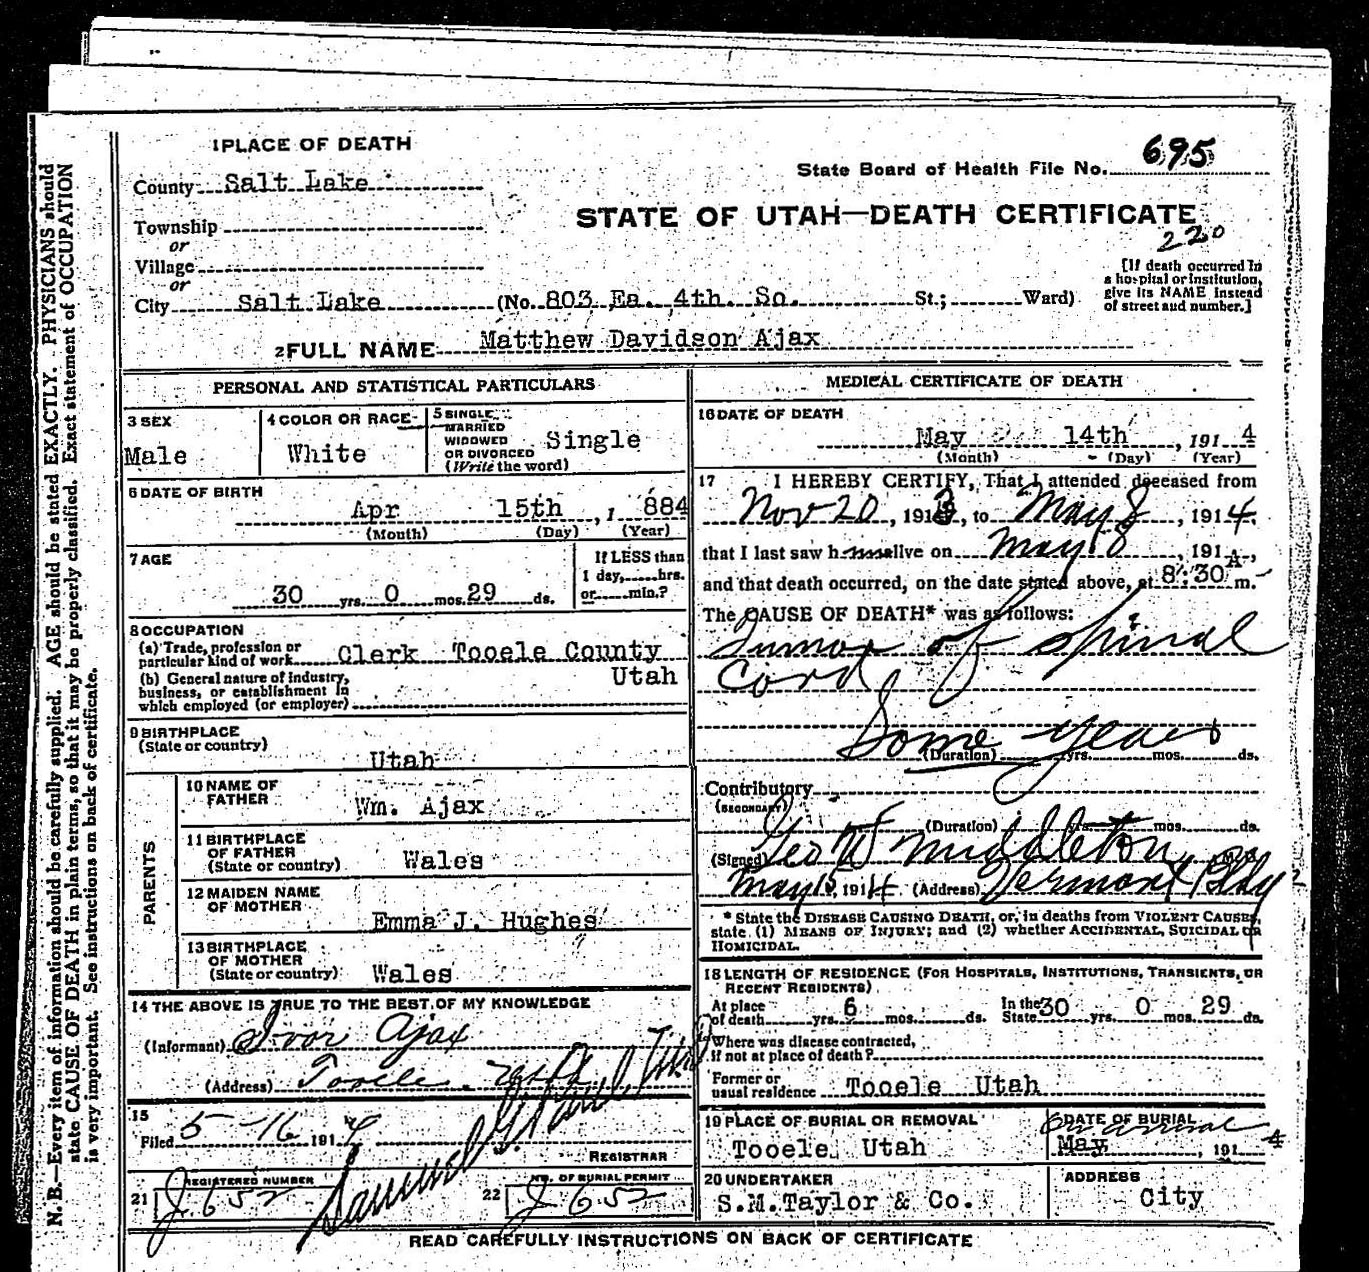 1 PLACE OF DEATH
County Salt Lake
Township
or
Village
or
City Salt Lake (No. 803 Ea. 4th. So. St.; Ward)
State Board of Health File No. 695
STATE OF UTAH—DEATH CERTIFICATE
220
[If death occurred in
a hospital or institution,
give its NAME instead
of street and number.]
2 FULL NAME Matthew Davidson Ajax
PERSONAL AND STATISTICAL PARTICULARS
3 SEX
Male
4 COLOR OR RACE
White
5 SINGLE,
MARRIED
WIDOWED
OR DIVORCED
(Write the word)
Single
6 DATE OF BIRTH
Apr 15th, 1 884
(Month) (Day) (Year)
7 AGE
30 yrs. 0 mos. 29 ds.
If LESS than
1 day, hrs.
or min.?
8 OCCUPATION
(a) Trade, profession or
particular kind of work Clerk Tooele County
Utah
(b) General nature of industry,
business, or establishment in
which employed (or employer)
9 BIRTHPLACE
(State or country)
Utah
PARENTS
10 NAME OF
FATHER
Wm. Ajax
11 BIRTHPLACE
OF FATHER
(State or country)
Wales
12 MAIDEN NAME
OF MOTHER
Emma J. Hughes
13 BIRTHPLACE
OF MOTHER
(State or country)
Wales
14 THE ABOVE IS TRUE TO THE BEST OF MY KNOWLEDGE
(Informant) Ivor Ajax
(Address) Tooele, Utah
15
Filed 5-16 1914
Samuel G. Paul
REGISTRAR
21 REGISTERED NUMBER
J 652
22 NO. OF BURIAL PERMIT
J 652
MEDICAL CERTIFICATE OF DEATH
16 DATE OF DEATH
May 14th, 191 4
(Month) (Day) (Year)
17 I HEREBY CERTIFY, That I attended deceased from
Nov 20, 1913, to May 8, 1914,
that I last saw him alive on May 8, 191 4,
and that death occurred, on the date stated above, at 8:30 A m.
The CAUSE OF DEATH* was as follows:
Tumor of spinal
Cord
Some years
(Duration) yrs. mos. ds.
Contributory
(SECONDARY)
(Duration) yrs. mos. ds.
(Signed) Geo W Middleton, M.D.
May 15, 1914 (Address) Vermont Bldg
* State the DISEASE CAUSING DEATH, or, in deaths from VIOLENT CAUSES,
state (1) MEANS OF INJURY; and (2) whether ACCIDENTAL, SUICIDAL OR
HOMICIDAL.
18 LENGTH OF RESIDENCE (FOR HOSPITALS, INSTITUTIONS, TRANSIENTS, OR
RECENT RESIDENTS)
At place
of death yrs. 6 mos. ds. In the
State 30 yrs. 0 mos. 29 ds.
Where was disease contracted,
if not at place of death?
Former or
usual residence Tooele Utah
19 PLACE OF BURIAL OR REMOVAL
Tooele Utah
DATE OF BURIAL
On arrival
May, 191 4
20 UNDERTAKER
S.M.Taylor & Co.
ADDRESS
City
READ CAREFULLY INSTRUCTIONS ON BACK OF CERTIFICATE
N. B.—Every item of information should be carefully supplied. AGE should be stated EXACTLY. PHYSICIANS should
state CAUSE OF DEATH in plain terms, so that it may be properly classified. Exact statement of OCCUPATION
is very important. See instructions on back of certificate.